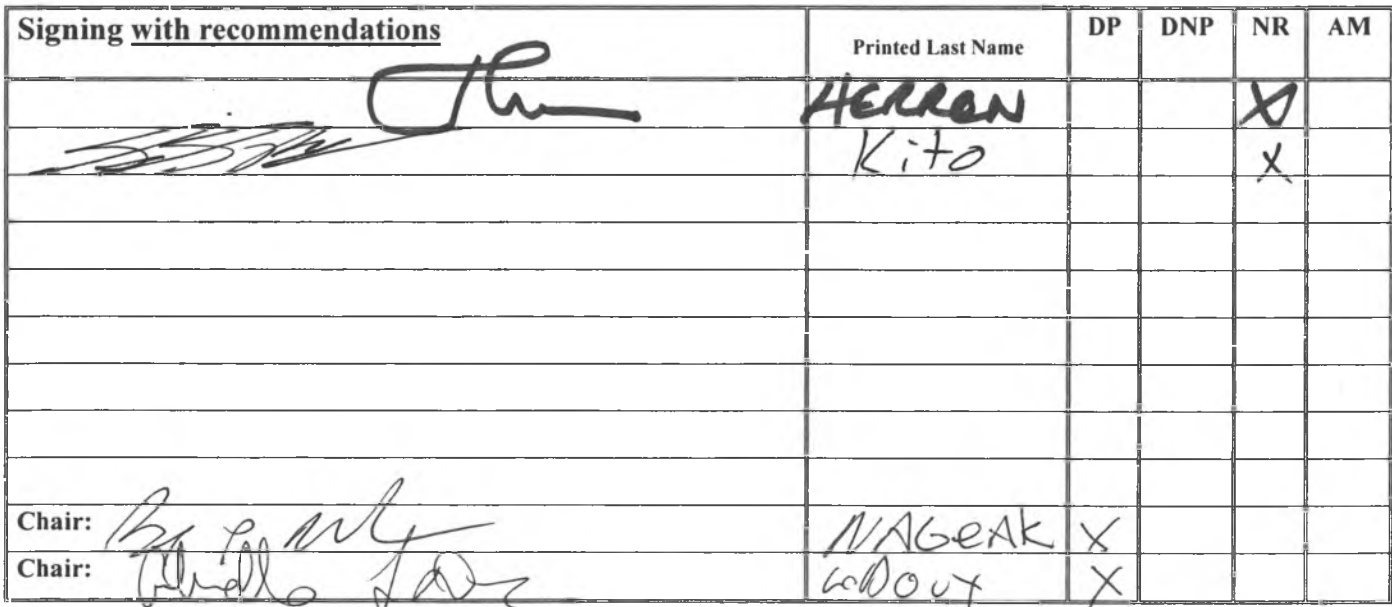 Signing with recommendations Printed Last Name DP DNP NR AM
HERRON X
Kito X
Chair: NAGEAK X
Chair: LeDoux X